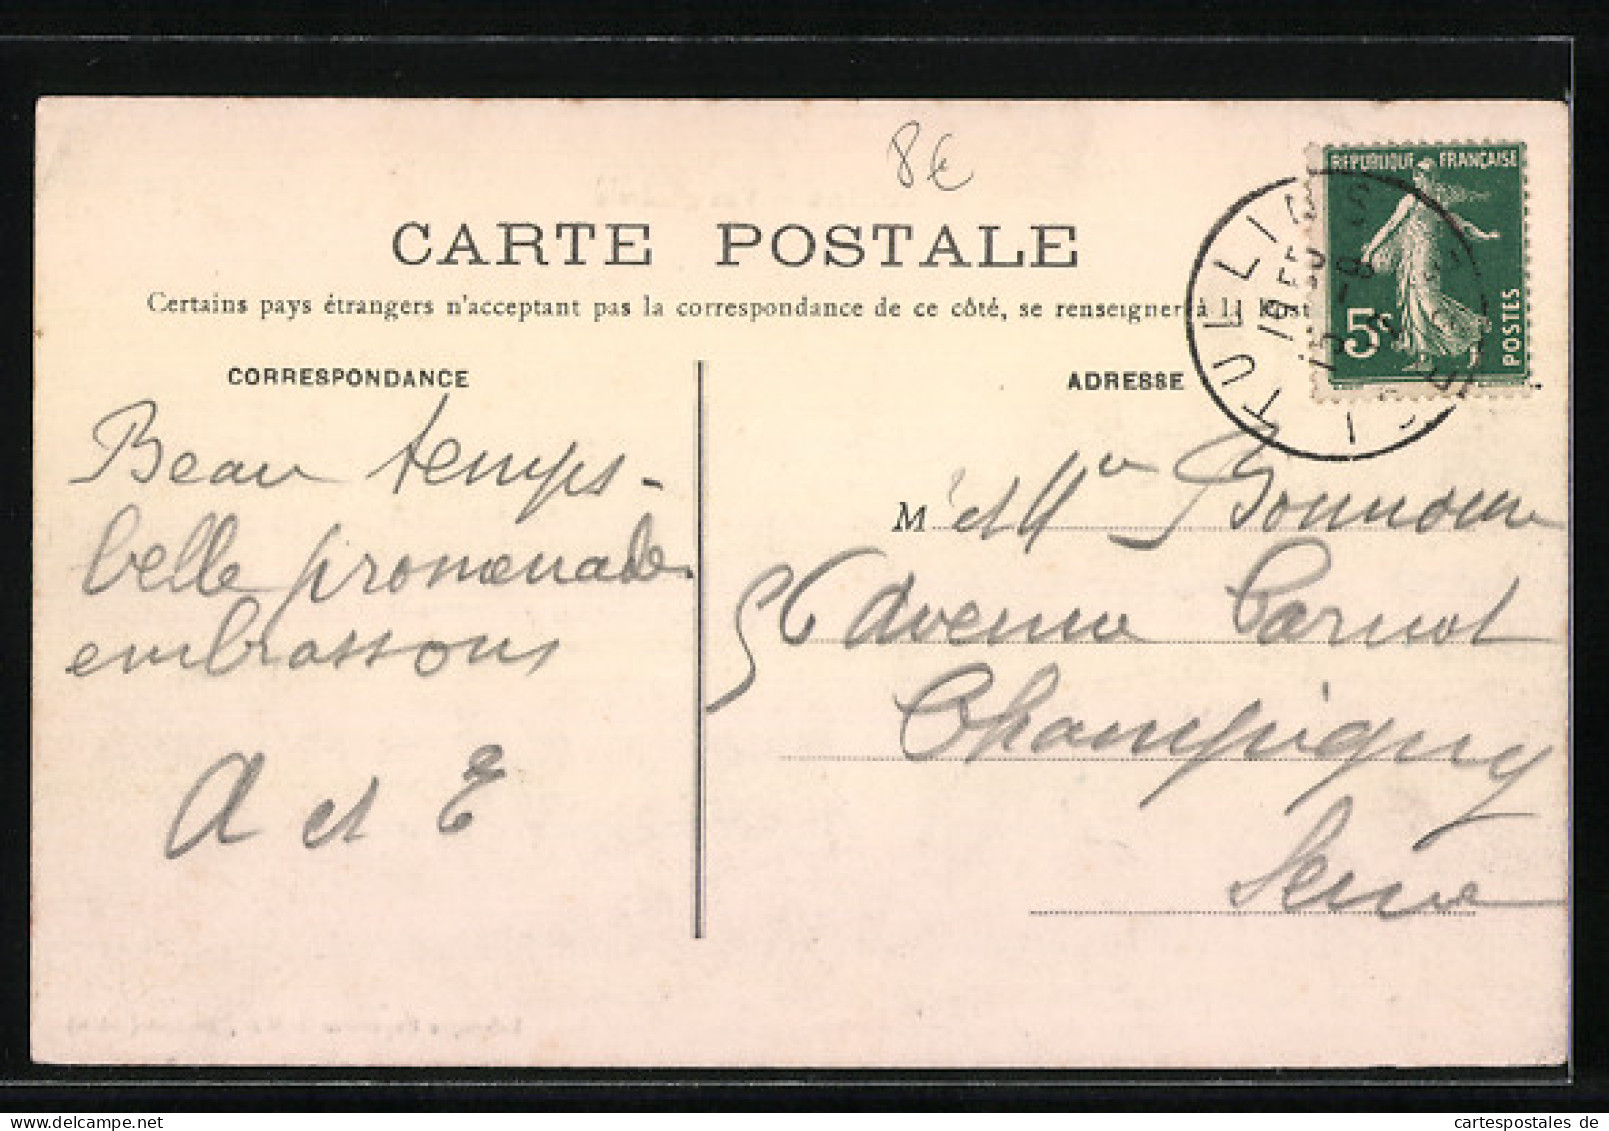 8€
CARTE POSTALE
Certains pays étrangers n'acceptant pas la correspondance de ce côté, se renseigner à la Post
CORRESPONDANCE
Beau temps -
belle promenade
embrassons
A et E
ADRESSE
REPUBLIQUE FRANÇAISE
5c
POSTES
TULLI
M et Mme
56 Avenue Carnot
Champigny
Seine
cartespostales de